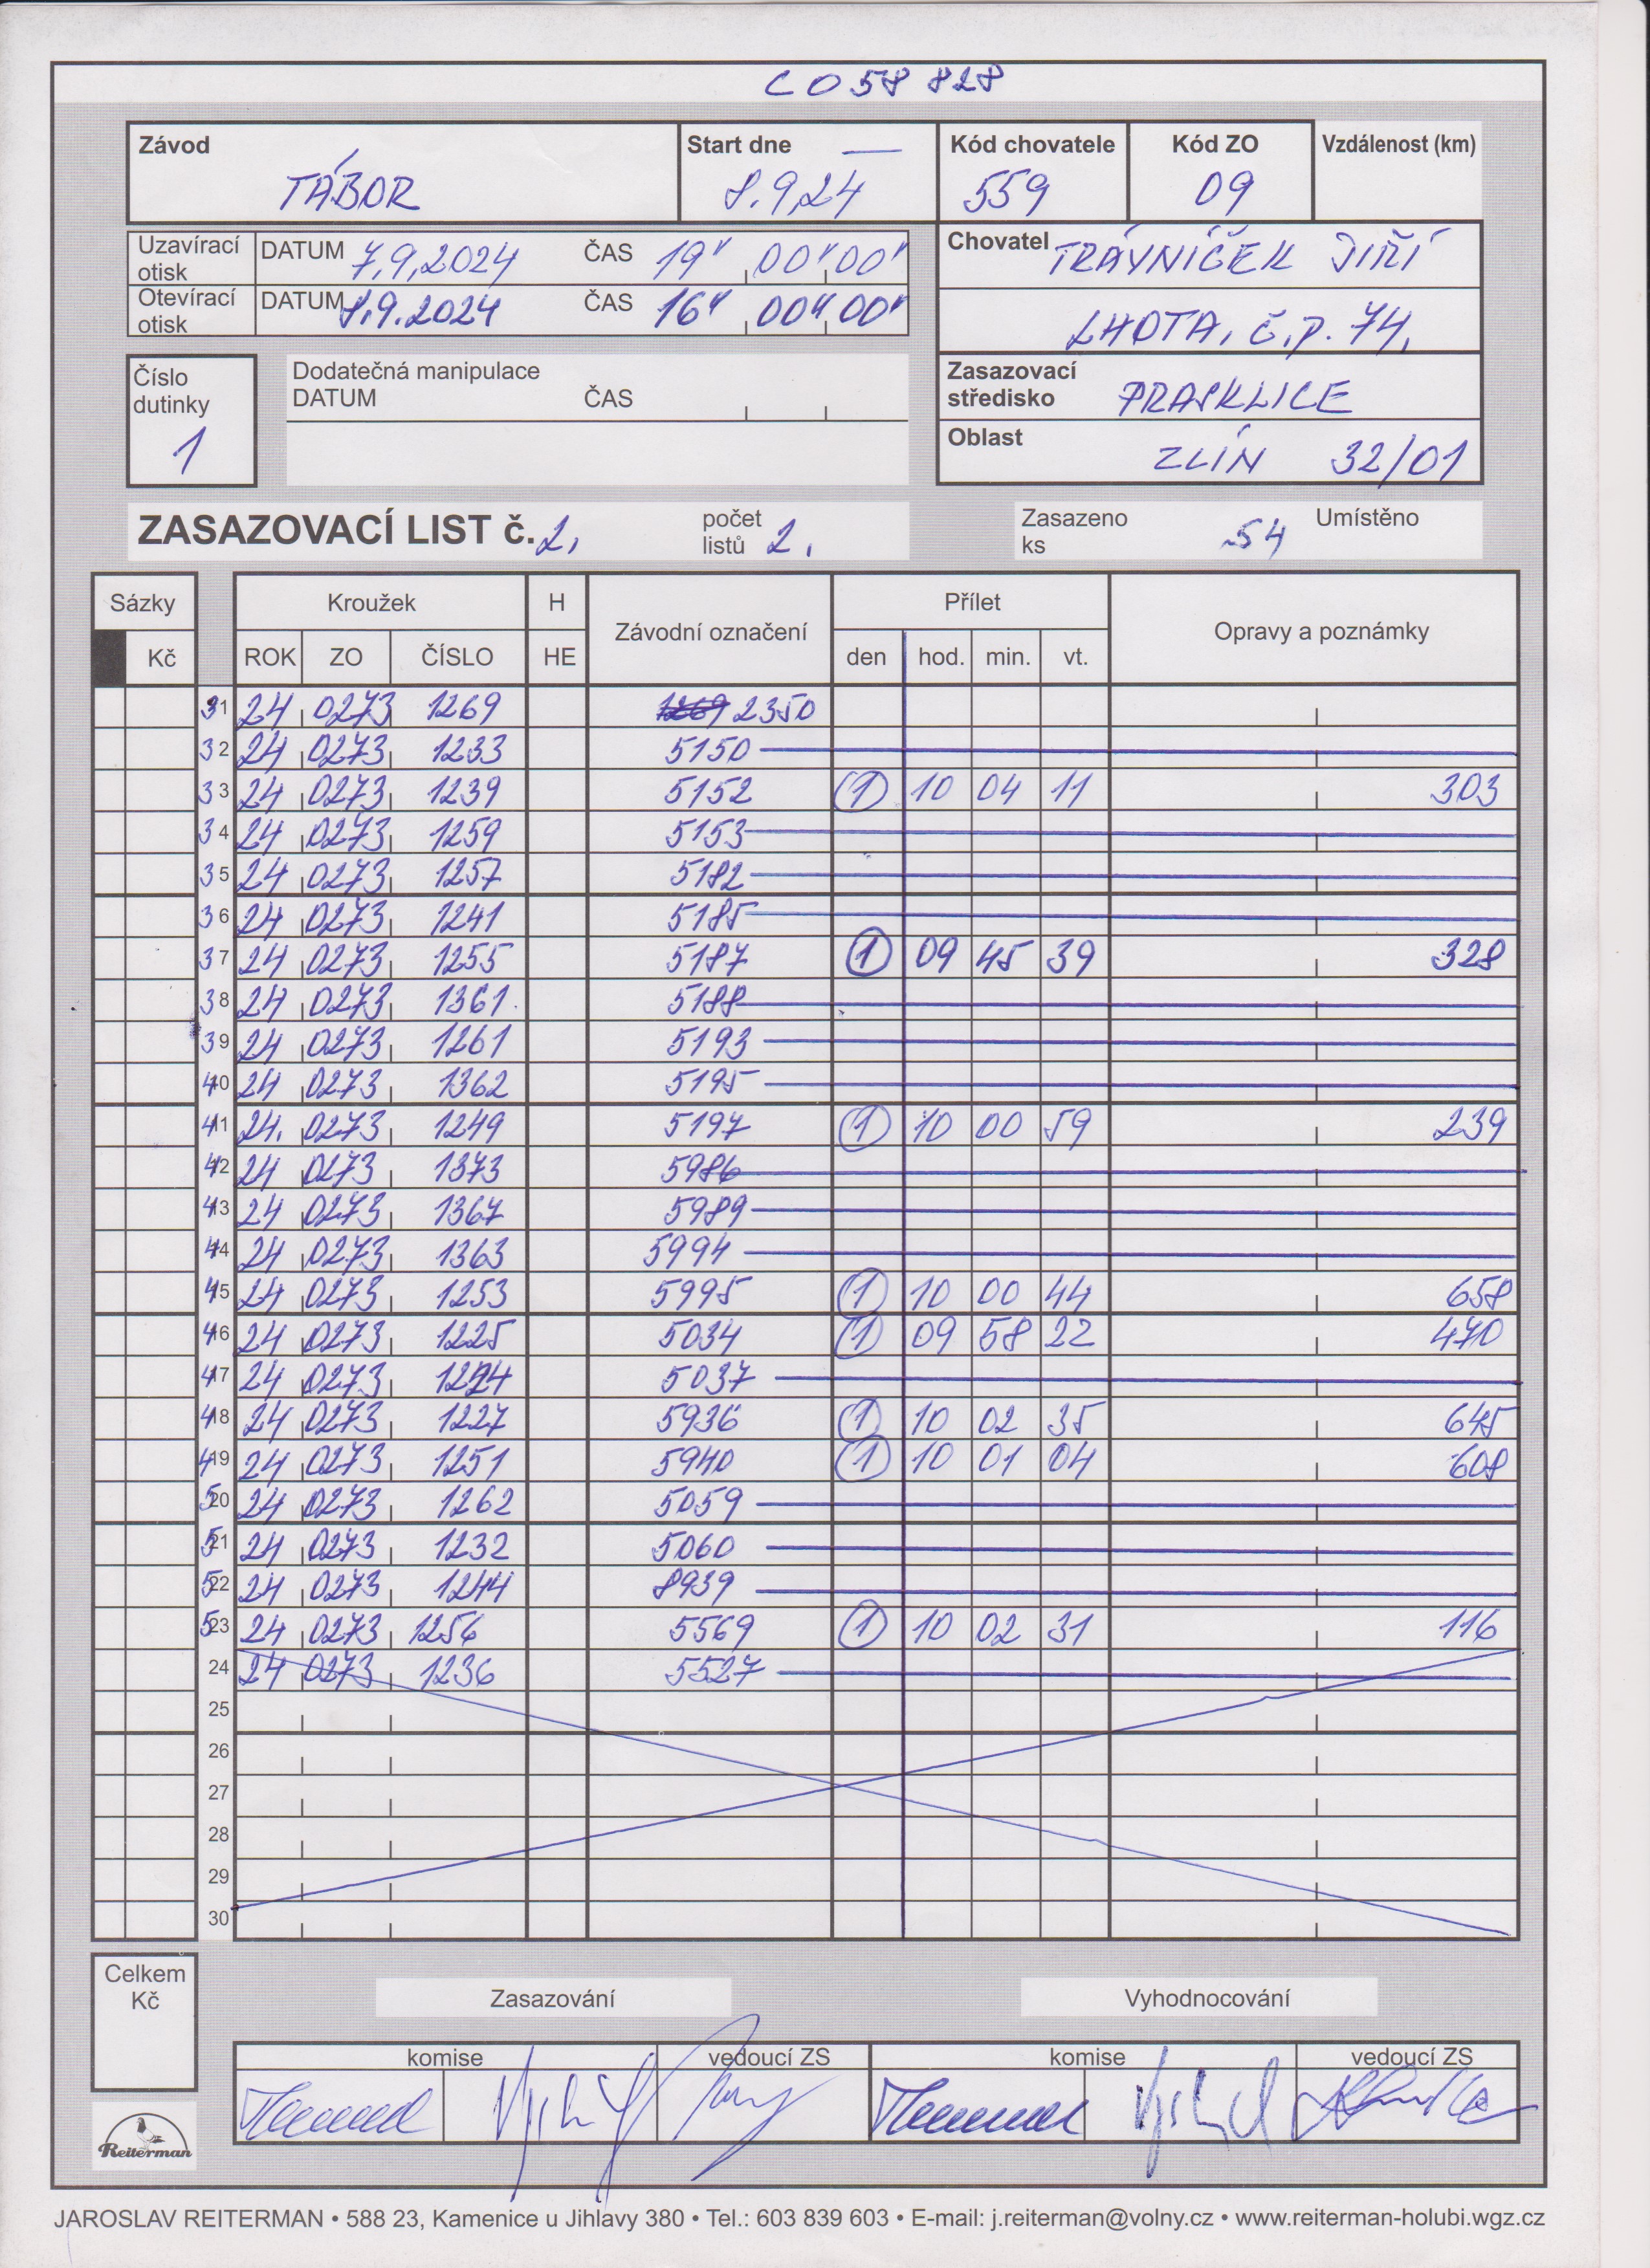 CO 58 828
Závod Start dne — Kód chovatele Kód ZO Vzdálenost (km)
TÁBOR 8.9.24 559 09
Uzavírací otisk DATUM 7.9.2024 ČAS 19" 00" 00"
Otevírací otisk DATUM 8.9.2024 ČAS 16" 00" 00"
Chovatel TRÁVNÍČEK JIŘÍ
LHOTA, č.p. 74,
Číslo dutinky 1
Dodatečná manipulace
DATUM ČAS
Zasazovací středisko PRASKLICE
Oblast ZLÍN 32/01
ZASAZOVACÍ LIST č. 2. počet listů 2. Zasazeno ks 54 Umístěno
Sázky Kroužek H Závodní označení Přílet Opravy a poznámky
Kč ROK ZO ČÍSLO HE den hod. min. vt.
31 24 0273 1269 1269 2350
32 24 0273 1233 5150
33 24 0273 1239 5152 1 10 04 11 303
34 24 0273 1259 5153
35 24 0273 1257 5182
36 24 0273 1241 5185
37 24 0273 1255 5187 1 09 45 39 328
38 24 0273 1361 5188
39 24 0273 1261 5193
40 24 0273 1362 5195
41 24. 0273 1249 5197 1 10 00 59 239
42 24 0273 1373 5986
43 24 0273 1367 5989
44 24 0273 1363 5994
45 24 0273 1253 5995 1 10 00 44 658
46 24 0273 1225 5034 1 09 58 22 470
47 24 0273 5037
48 24 0273 1227 5936 1 10 02 35 645
49 24 0273 1251 5940 1 10 01 04 608
50 24 0273 1262 5059
51 24 0273 1232 5060
52 24 0273 1244 8939
53 24 0273 1256 5569 1 10 02 31 116
24 24 0273 1236 5527
25
26
27
28
29
30
Celkem Kč
Zasazování Vyhodnocování
komise vedoucí ZS komise vedoucí ZS
Reiterman
JAROSLAV REITERMAN • 588 23, Kamenice u Jihlavy 380 • Tel.: 603 839 603 • E-mail: j.reiterman@volny.cz • www.reiterman-holubi.wgz.cz